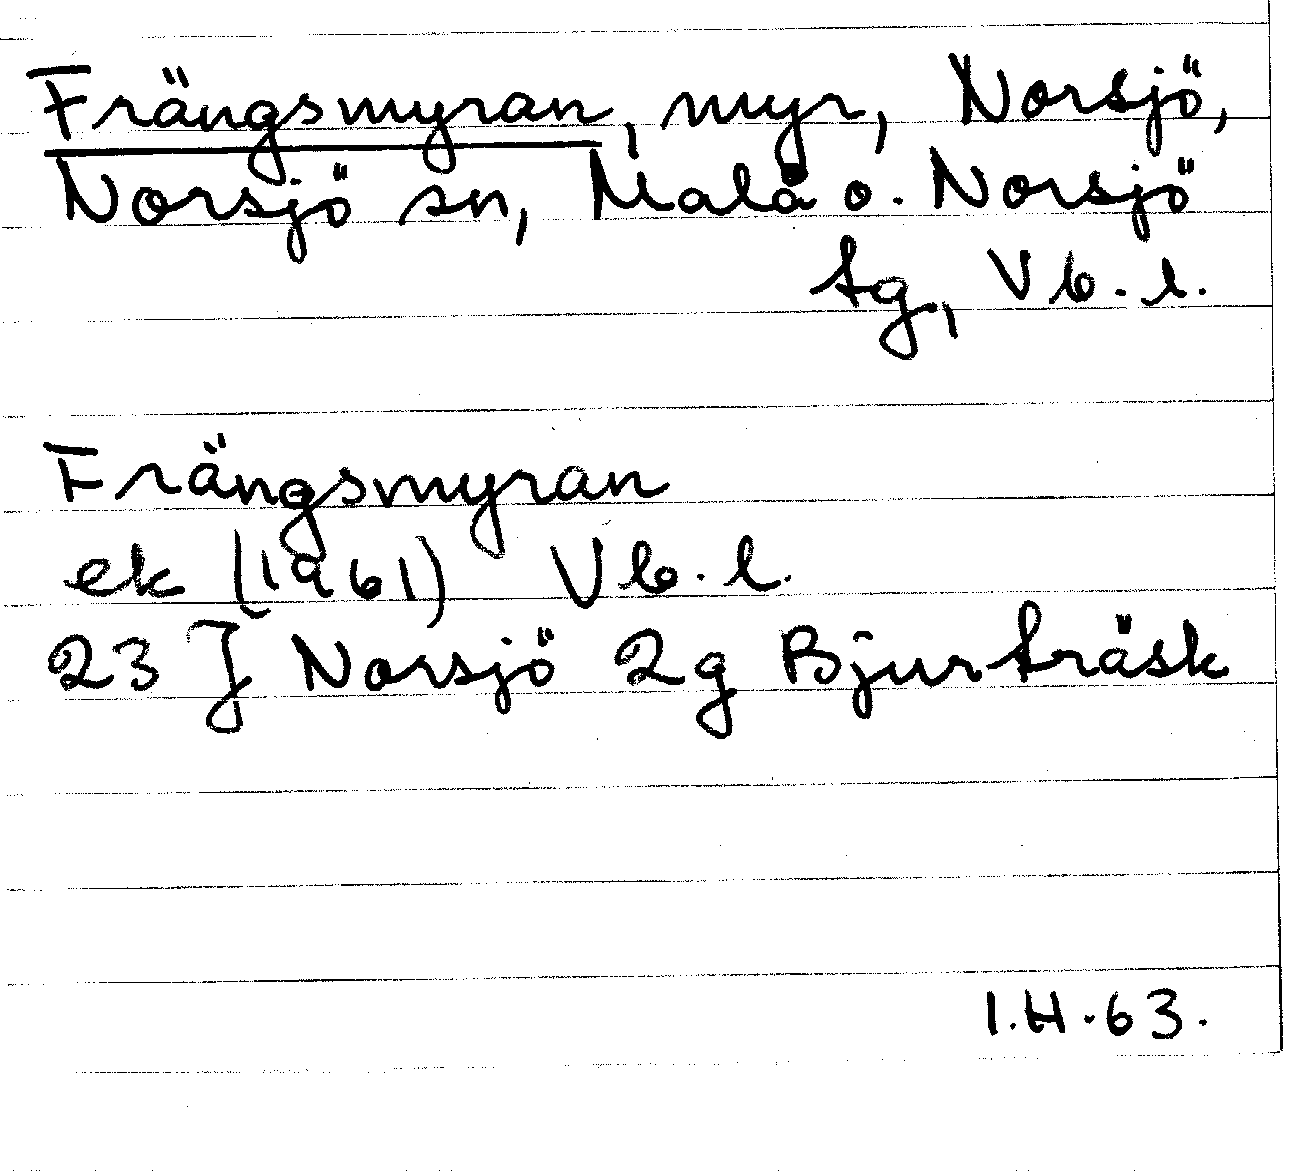 Frängsmyran, myr, Norsjö,
Norsjö sn, Malå o. Norsjö
tg, Vb. l.
Frängsmyran
ek (1961) Vb. l.
23 J Norsjö 2g Bjurträsk
I.H.63.